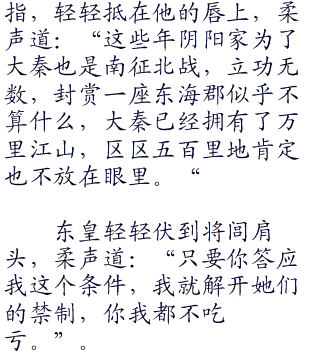 指，轻轻抵在他的唇上，柔
声道：“这些年阴阳家为了
大秦也是南征北战，立功无
数，封赏一座东海郡似乎不
算什么，大秦已经拥有了万
里江山，区区五百里地肯定
也不放在眼里。“
　　东皇轻轻伏到将闾肩
头，柔声道：“只要你答应
我这个条件，我就解开她们
的禁制，你我都不吃
亏。”。